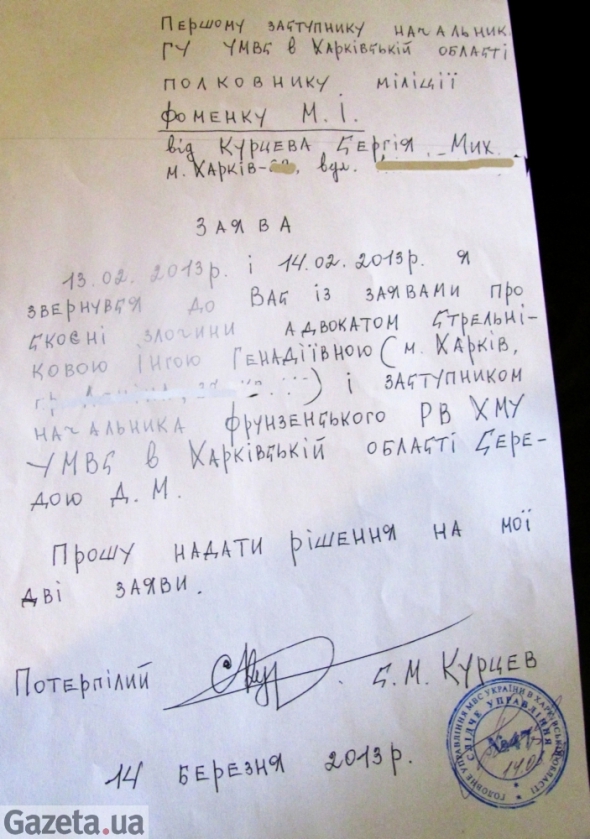 Першому заступнику начальник.
ГУ УМВС в Харківській області
полковнику міліції
Фоменку М. І.
від Курцева Сергія Мих.
м. Харків- , вул.
ЗАЯВА
13.02.2013р. і 14.02.2013р. я
звернувся до Вас із заявами про
скоєні злочини адвокатом Стрельні-
ковою Інгою Генадіївною (м. Харків,
) і заступником
начальника Фрунзенського РВ ХМУ
УМВС в Харківській області Сере-
дою Д. М.
Прошу надати рішення на мої
дві заяви.
Потерпілий С. М. Курцев
14 березня 2013р.
ГОЛОВНЕ УПРАВЛІННЯ МВС УКРАЇНИ В ХАРКІВСЬКІЙ ОБЛАСТІ
СЛІДЧЕ УПРАВЛІННЯ
Gazeta.ua